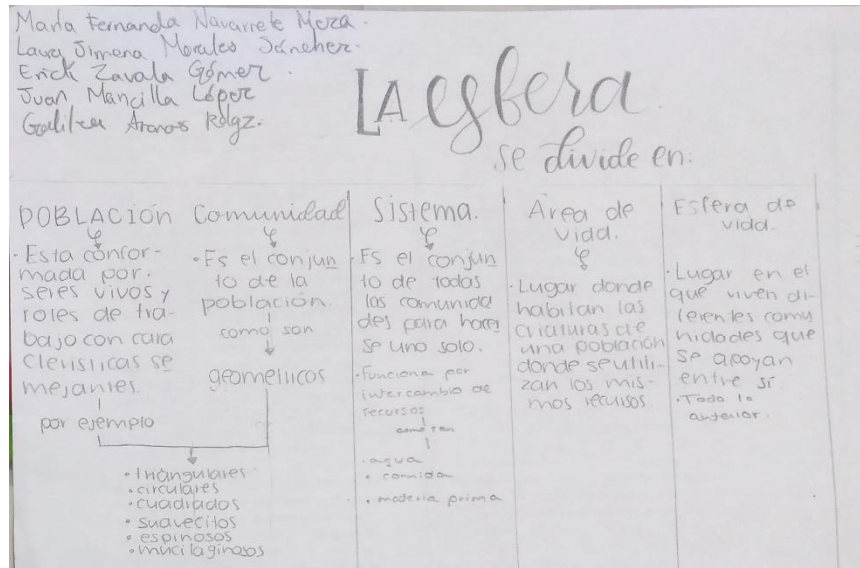 María Fernanda Navarrete Meza.
Laura Jimena Morales Sáncher.
Erick Zavala Gómez.
Juan Mancilla López
Galilea Rdgz.
LA esfera.
se divide en:
POBLACIÓN
· Esta confor-
mada por.
seres vivos y
roles de tra-
bajo con cara
cterísticas se
mejantes.
por ejemplo
Comunidad
· Es el conjun
to de la
población.
como son
geometricos
· triángulares
· circulares
· cuadrados
· suavecitos
· espinosos
· mucilaginosos
Sistema.
· Es el conjun
to de todas
las comunida
des para hacer
se uno solo.
· Funciona por
intercambio de
recursos
como son
· agua
· comida
· materia prima
Área de
vida.
· Lugar donde
habitan las
criaturas de
una población
donde se utili-
zan los mis-
mos recursos
Esfera de
vida.
· Lugar en el
que viven di-
ferentes comu
nidades que
se apoyan
entre sí.
· Todo lo
anterior.